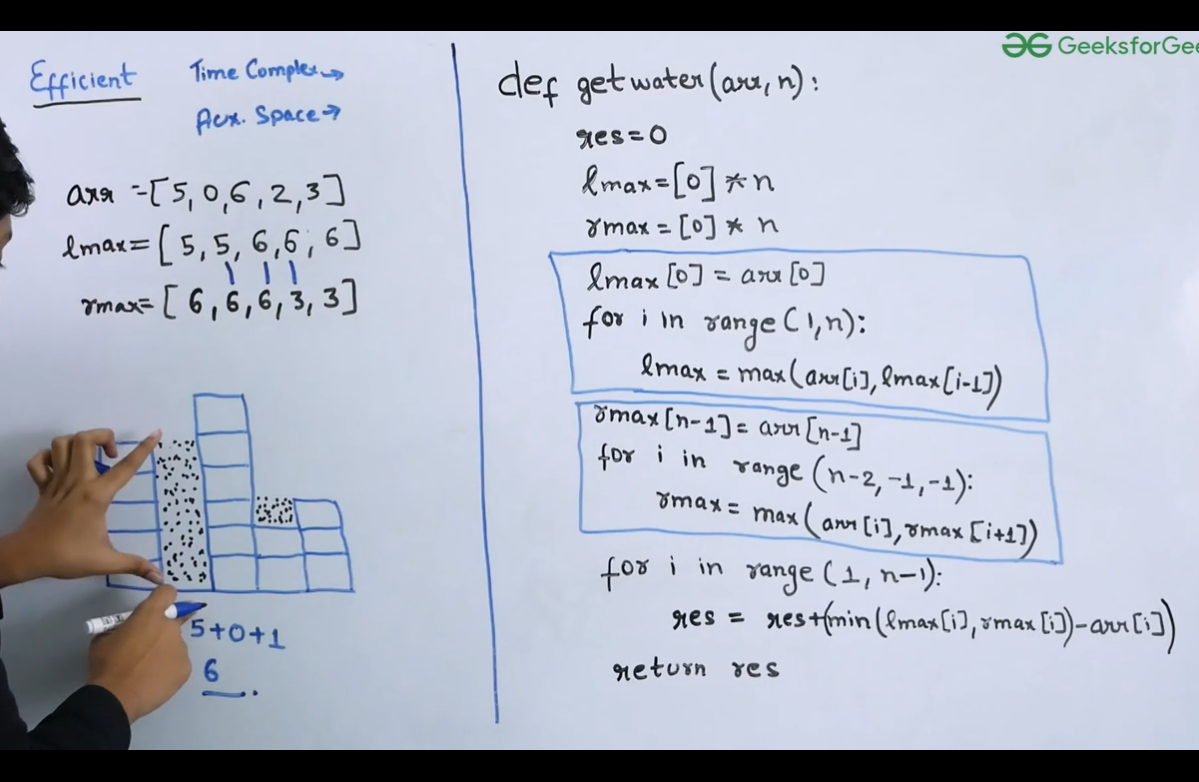 GeeksforGee
Efficient
Time Complex→
Aux. Space→
arr =[5,0,6,2,3]
lmax=[5,5,6,6,6]
rmax=[6,6,6,3,3]
5+0+1
6
def getwater(arr,n):
res=0
lmax=[0]*n
rmax=[0]*n
lmax[0]=arr[0]
for i in range(1,n):
lmax=max(arr[i],lmax[i-1])
rmax[n-1]=arr[n-1]
for i in range(n-2,-1,-1):
rmax=max(arr[i],rmax[i+1])
for i in range(1,n-1):
res = res+(min(lmax[i],rmax[i])-arr[i])
return res